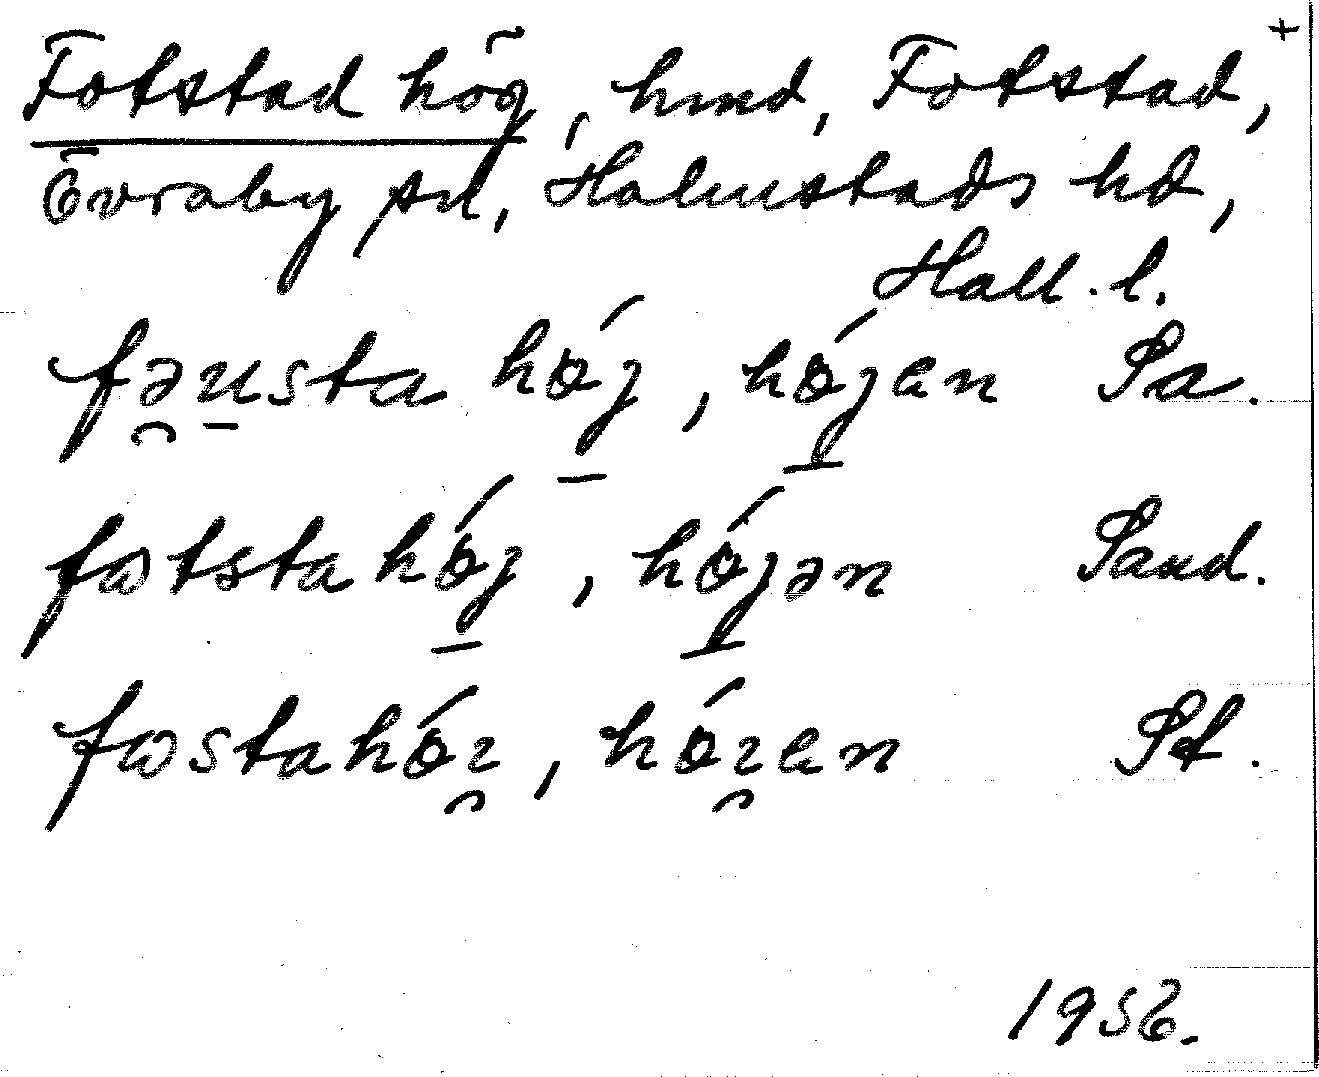 +
Fotstad hög, hmd, Fotstad,
Övraby sn, Halmstads hd,
Hall. l.
fəu̲sta hǿj, hǿjen Sa.
fɷtsta hǿj, hǿjən Sand.
fɷstahǿɪ, hǿɪen St.
1956.